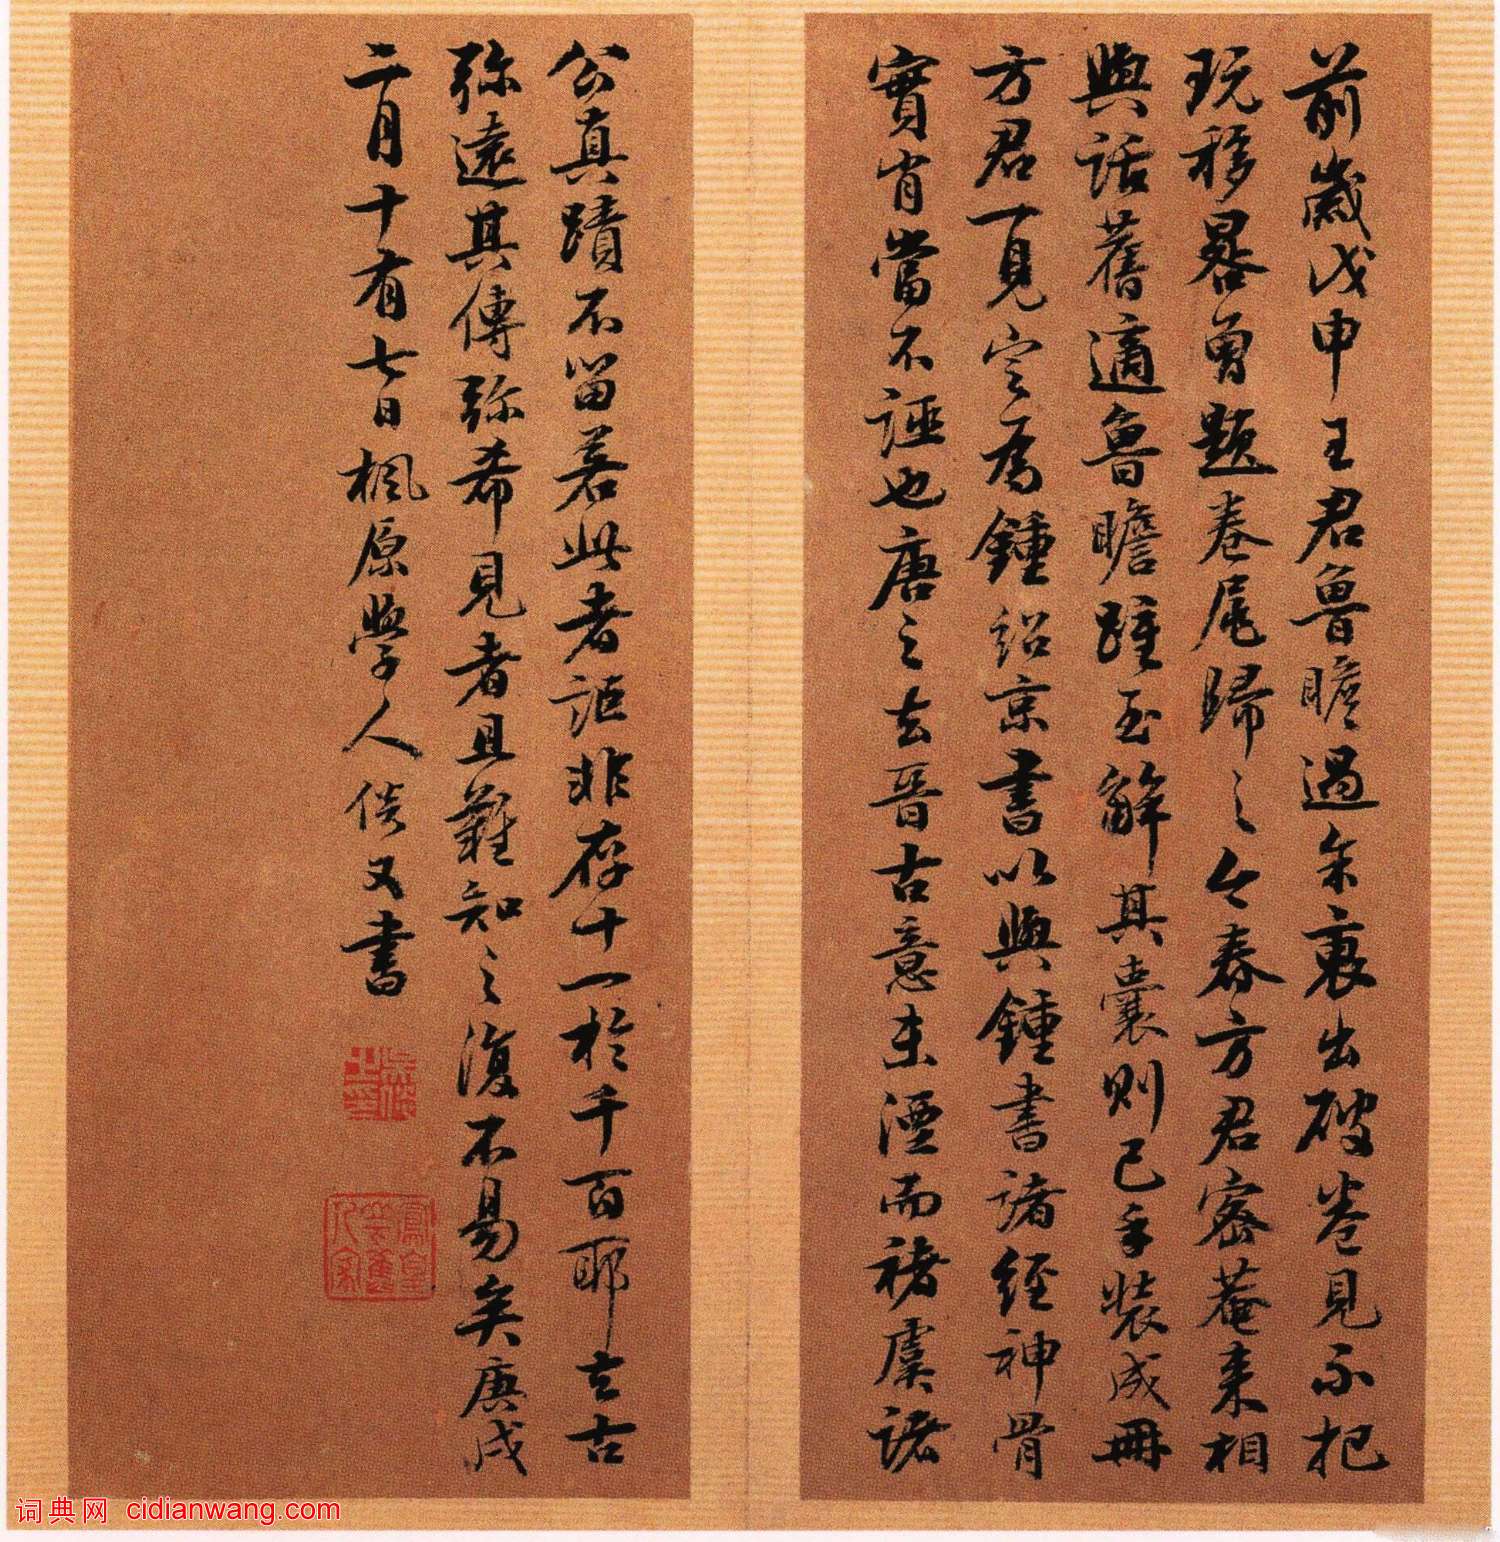 前歲戊申王君魯瞻過余裏出破卷見示把
玩移晷曾題卷尾歸之今春方君密菴來相
與話舊適魯瞻踵至解其囊則已手裝成冊
方君一見定為鍾紹京書以與鍾書諸經神骨
實肖當不誣也唐之去晉古意未湮而褚虞諸
公真蹟不留若此者詎非存十一於千百耶去古
弥遠其傳弥希見者且難知之復不易矣庚戌
二月十有七日楓原學人倓又書
词典网 cidianwang.com